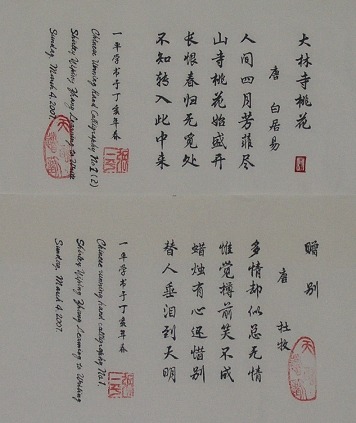 大林寺桃花
唐 白居易
人间四月芳菲尽
山寺桃花始盛开
长恨春归无觅处
不知转入此中来
一平学书于丁亥年春
Chinese running hand Calligraphy No.2 (2)
Shirley Yiping Zhang Learning to Write
Sunday, March 4, 2007.
赠别
唐 杜牧
多情却似总无情
惟觉樽前笑不成
蜡烛有心还惜别
替人垂泪到天明
一平学书于丁亥年春
Chinese running hand calligraphy No.1.
Shirley Yiping Zhang Learning to Writing
Sunday, March 4, 2007.